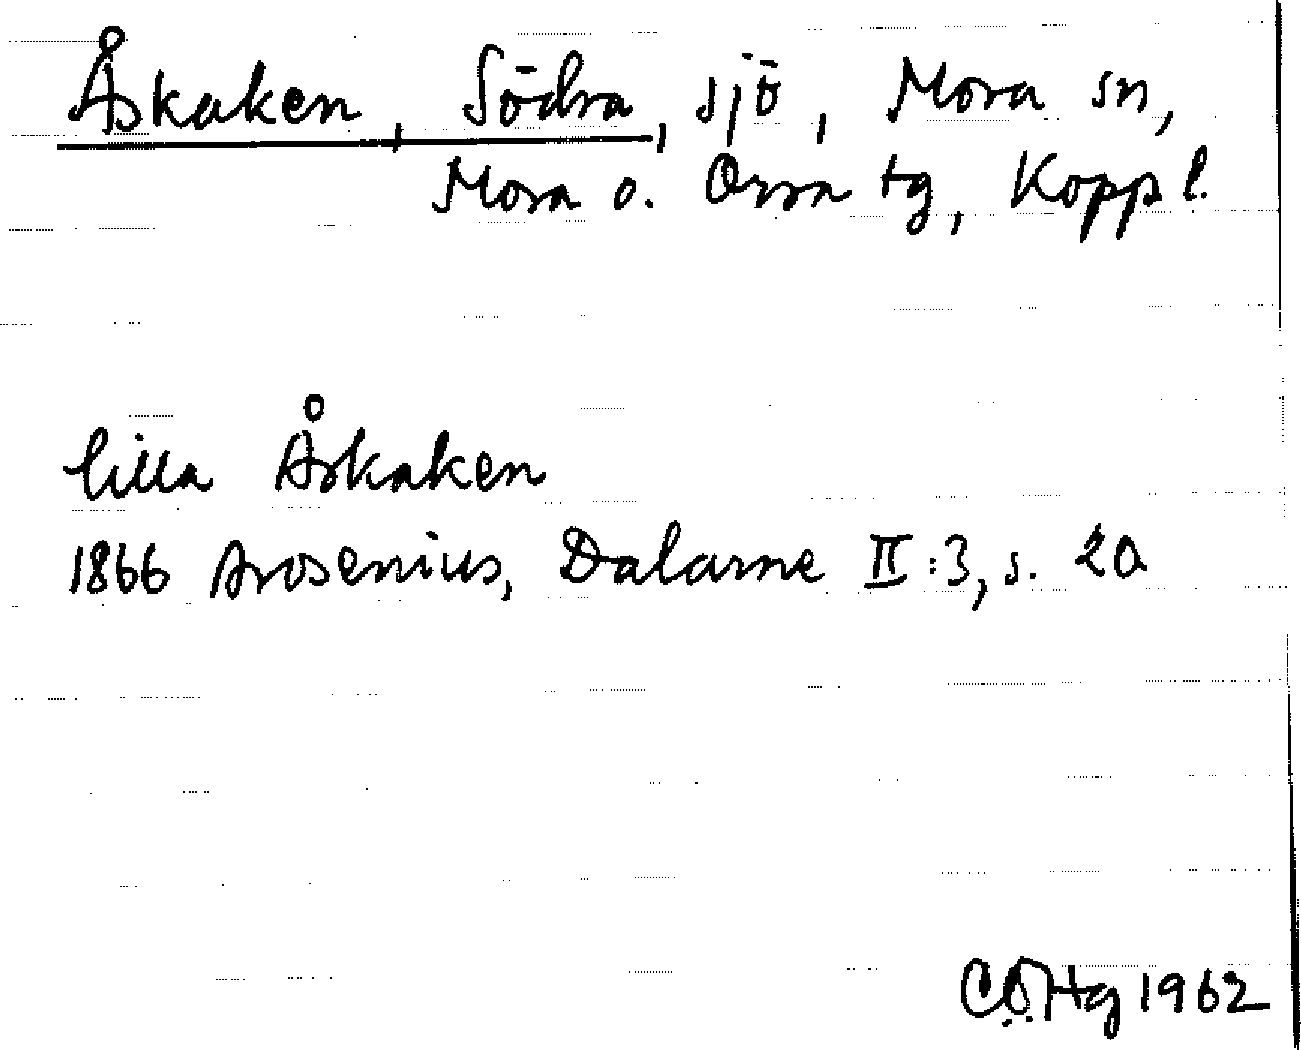 Åskaken, Södra, sjö, Mora sn,
Mora o. Orsa tg, Kopp l.
lilla Åskaken
1866 Arosenius, Dalarne II:3, s. 20
CÖHg 1962